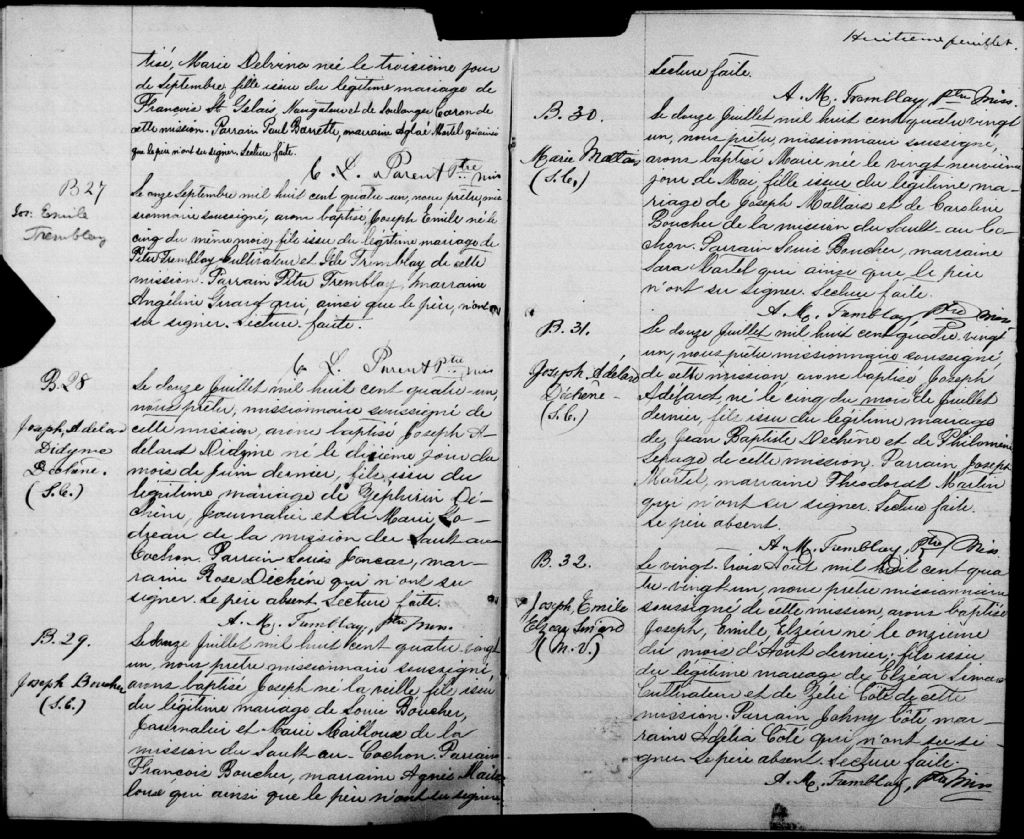 tisé, Marie Delvina née le troisieme jour
de Septembre fille issu du légitime mariage de
François St Gelais, Navigateur et de Soulange Caron de
cette mission. Parrain Paul Barrette, marraine Aglaé Martel qui ainsi
que le père n'ont su signer. Lecture faite.
C. L. Parent Ptre mis
B 27
Jos: Emile
Tremblay
Le onze Septembre mil huit cent quatre un, nous prêtre, mis
sionnaire soussigné, avons baptisé, Joseph Emile né le
cinq du même mois, fils issu du légitime mariage de
Pitre Tremblay Cultivateur et Tremblay de cette
mission. Parrain Pitre Tremblay, marraine
Angéline Girard qui, ainsi que le père, n'ont
su signer. Lecture faite.
C. L. Parent Ptre mis
B. 28
Joseph, Adélard
Didyme
Dechêne.
(S.C.)
Le douze Juillet mil huit cent quatre un,
nous prêtre, missionnaire soussigné de
cette mission, avons baptisé Joseph A-
delard Didyme né le dixième jour du
mois de Juin dernier, fils issu du
légitime mariage de Zéphirin Dé-
chêne, Journalier et de Marie
de la mission du Sault au
Cochon Parrain Louis Joncas, mar-
raine Rose Dechêne qui n'ont su
signer. Le père absent. Lecture faite.
A. M. Tremblay, Ptre Miss.
B. 29.
Joseph Boucher
(S.C.)
Le douze Juillet mil huit cent quatre vingt
un, nous prêtre missionnaire soussigné
avons baptisé Joseph né la veille, fils issu
du légitime mariage de Louis Boucher,
Journalier et Marie Mailloux de la
mission du Sault au Cochon Parrain
François Boucher, marraine Agnès Mail-
loux qui ainsi que le père n'ont su signer
Huitième feuillet.
Lecture faite.
A. M. Tremblay Ptre Miss.
B. 30.
Marie Maltais
(S.C.)
Le douze Juillet mil huit cent quatre vingt
un, nous prêtre, missionnaire soussigné,
avons baptisé Marie née le vingt neuvième
jour de Mai, fille issu du légitime ma-
riage de Joseph Maltais et de Caroline
Boucher de la mission du Sault au Co-
chon. Parrain Louis Boucher, marraine
Sara Martel qui ainsi que le père
n'ont su signer. Lecture faite.
A. M. Tremblay Ptre Miss
B. 31.
Joseph, Adélard
Déchêne-
(S.C.)
Le douze Juillet mil huit cent quatre vingt
un, nous prêtre missionnaire soussigné
de cette mission avons baptisé Joseph
Adélard, né le cinq du mois de Juillet
dernier, fils issu du légitime mariage
de Jean Baptiste Dechêne et de Philomène
Lepage de cette mission. Parrain Joseph
Martel, marraine Théodorat Martin
qui n'ont su signer. Lecture faite.
Le père absent.
A. M. Tremblay, Ptre Miss.
B. 32.
Joseph, Emile
Elzéar Simard
(M.V.)
Le vingt-trois Août mil huit cent qua
tre vingt un, nous prêtre missionnaire
soussigné de cette mission, avons baptisé
Joseph, Emile, Elzéar né le onzième
du mois d'Août dernier, fils issu
du légitime mariage de Elzéar Simard
Cultivateur et de Zélie Côté de cette
mission. Parrain Johny Côté mar-
raine Adélia Côté qui n'ont su si-
gner. Le père absent. Lecture faite.
A. M. Tremblay, Ptre Miss